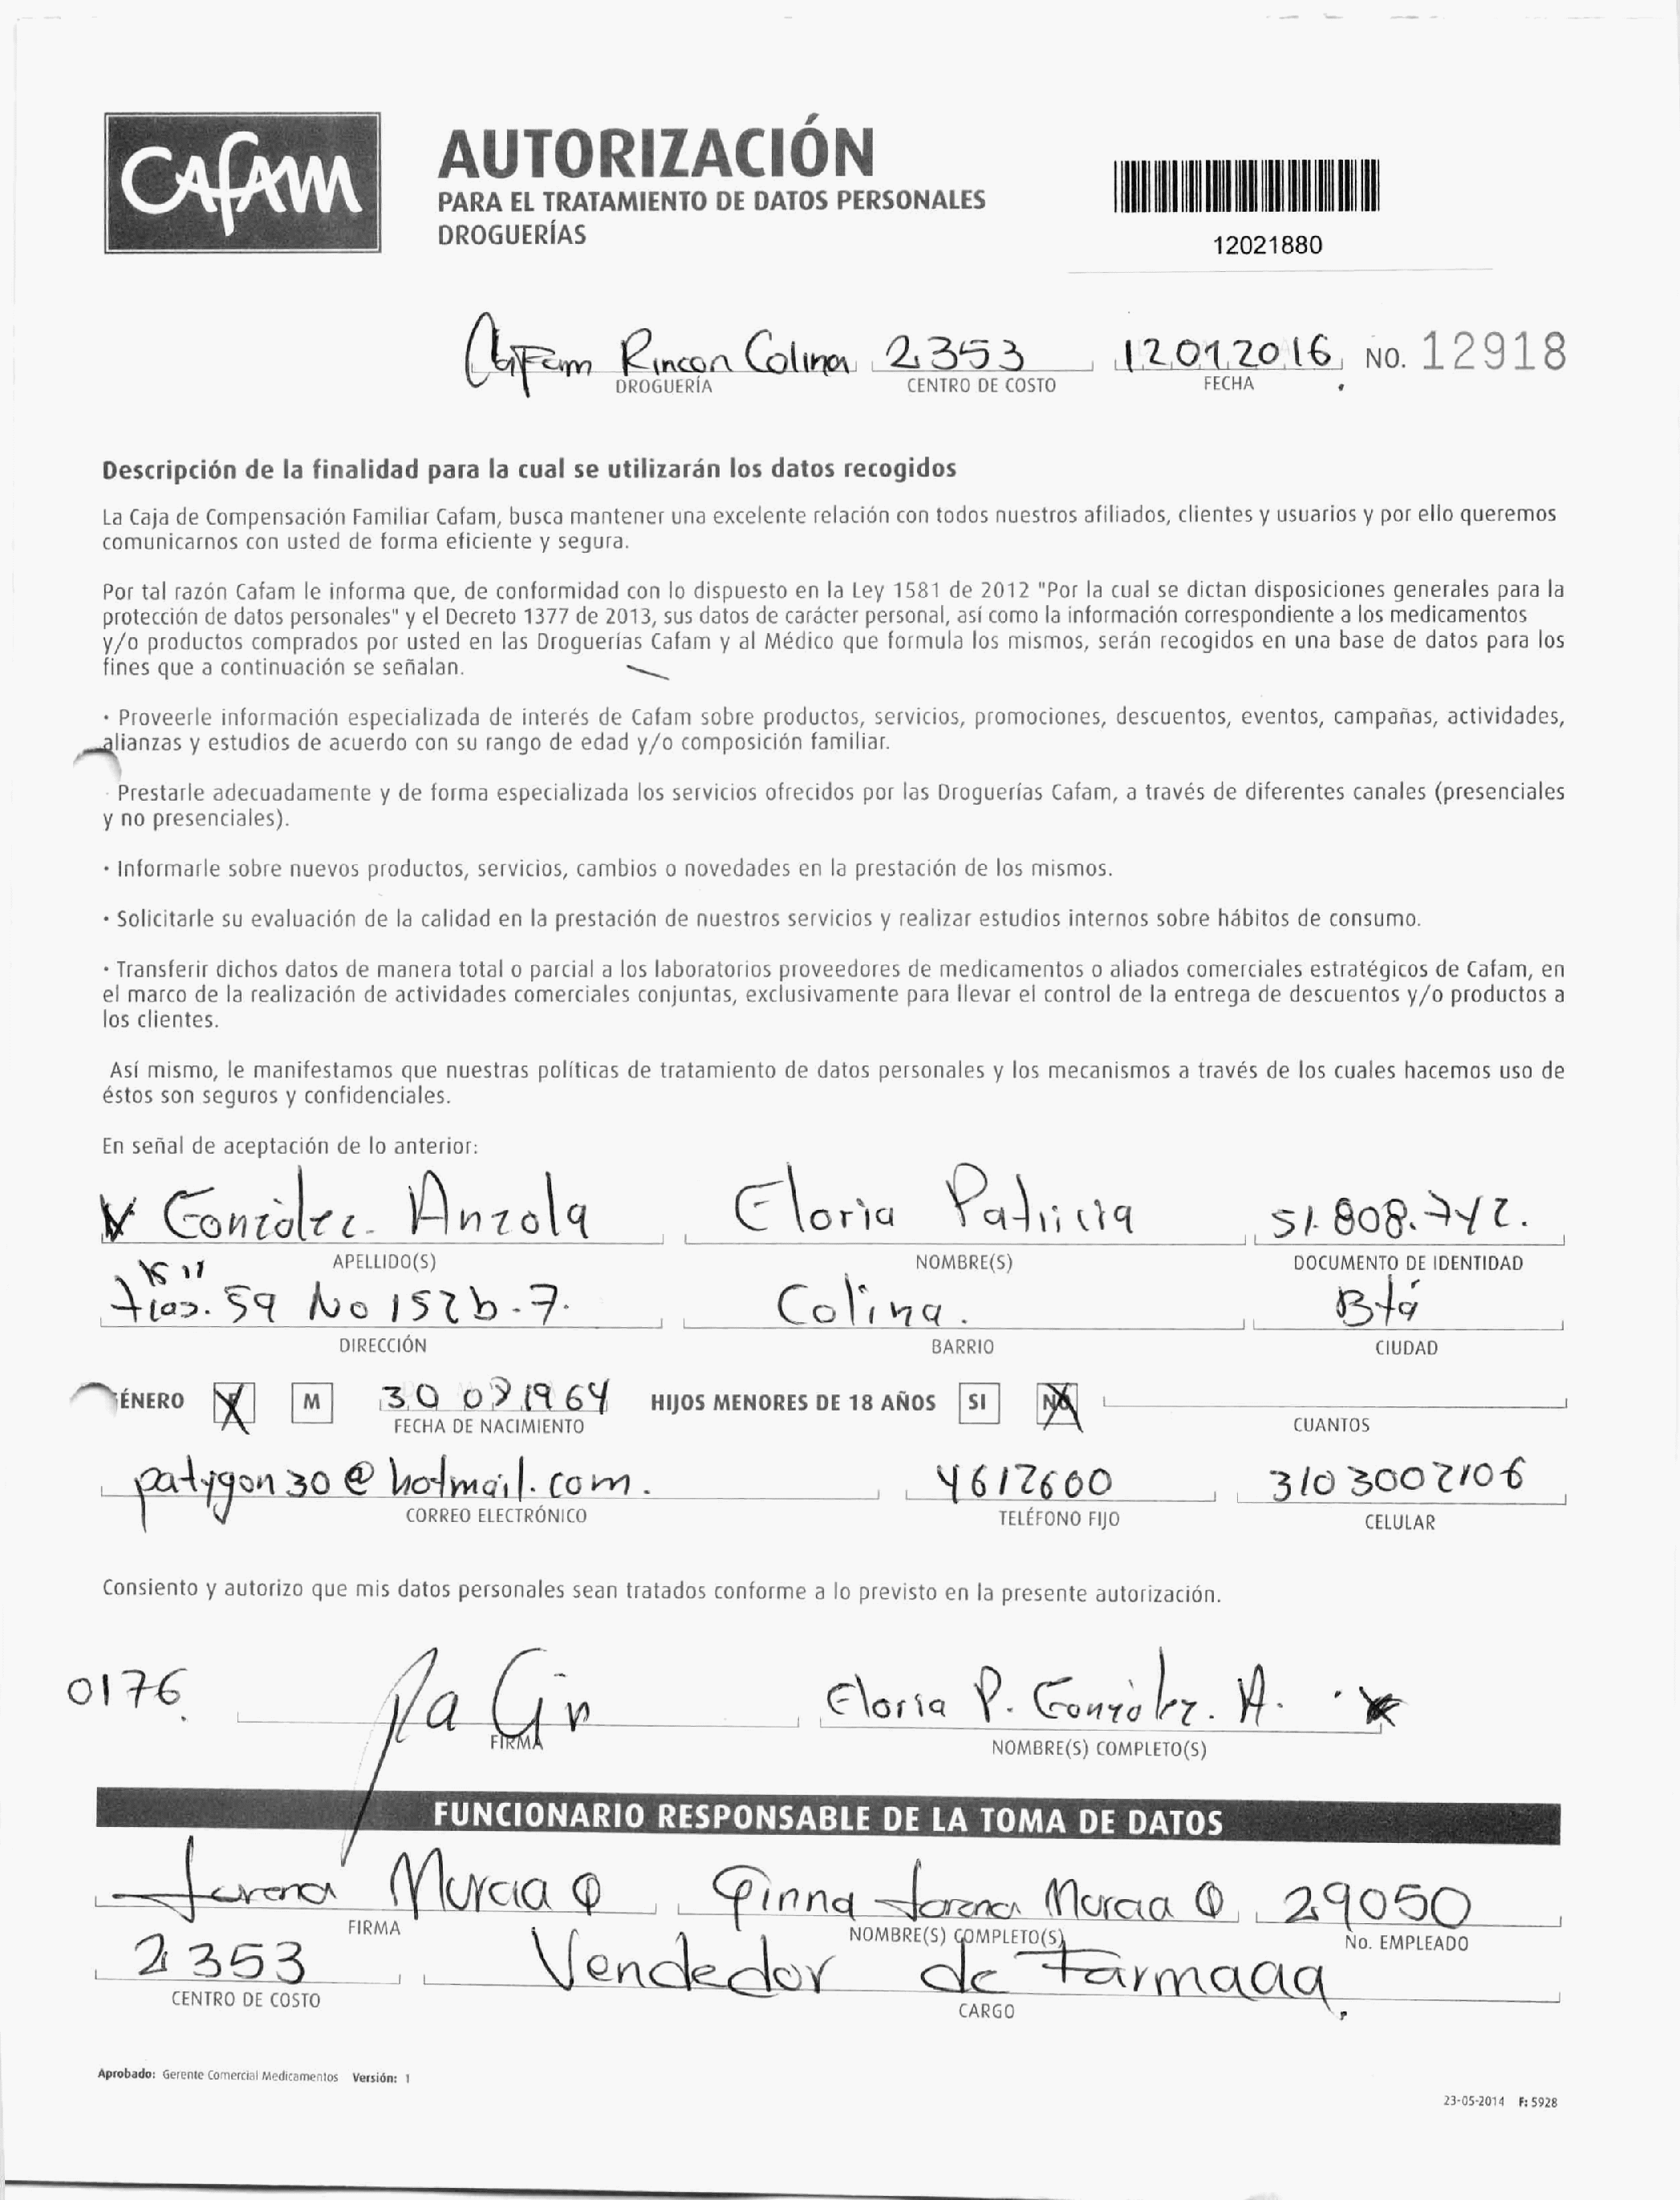 CAFAM
AUTORIZACIÓN
PARA EL TRATAMIENTO DE DATOS PERSONALES
DROGUERÍAS
12021880
Cafam Rincon Colina 2353 12012016 NO. 12918
DROGUERÍA CENTRO DE COSTO FECHA
Descripción de la finalidad para la cual se utilizarán los datos recogidos
La Caja de Compensación Familiar Cafam, busca mantener una excelente relación con todos nuestros afiliados, clientes y usuarios y por ello queremos
comunicarnos con usted de forma eficiente y segura.
Por tal razón Cafam le informa que, de conformidad con lo dispuesto en la Ley 1581 de 2012 "Por la cual se dictan disposiciones generales para la
protección de datos personales" y el Decreto 1377 de 2013, sus datos de carácter personal, así como la información correspondiente a los medicamentos
y/o productos comprados por usted en las Droguerías Cafam y al Médico que formula los mismos, serán recogidos en una base de datos para los
fines que a continuación se señalan.
· Proveerle información especializada de interés de Cafam sobre productos, servicios, promociones, descuentos, eventos, campañas, actividades,
alianzas y estudios de acuerdo con su rango de edad y/o composición familiar.
· Prestarle adecuadamente y de forma especializada los servicios ofrecidos por las Droguerías Cafam, a través de diferentes canales (presenciales
y no presenciales).
· Informarle sobre nuevos productos, servicios, cambios o novedades en la prestación de los mismos.
· Solicitarle su evaluación de la calidad en la prestación de nuestros servicios y realizar estudios internos sobre hábitos de consumo.
· Transferir dichos datos de manera total o parcial a los laboratorios proveedores de medicamentos o aliados comerciales estratégicos de Cafam, en
el marco de la realización de actividades comerciales conjuntas, exclusivamente para llevar el control de la entrega de descuentos y/o productos a
los clientes.
Así mismo, le manifestamos que nuestras políticas de tratamiento de datos personales y los mecanismos a través de los cuales hacemos uso de
éstos son seguros y confidenciales.
En señal de aceptación de lo anterior:
González. Anzola Gloria Patricia 51.808.742.
APELLIDO(S) NOMBRE(S) DOCUMENTO DE IDENTIDAD
59 No 152b-7. Colina. Btá
DIRECCIÓN BARRIO CIUDAD
GÉNERO X M 30 1964 HIJOS MENORES DE 18 AÑOS SI NO
FECHA DE NACIMIENTO CUANTOS
patygon30@hotmail.com. 4617600 3103002106
CORREO ELECTRÓNICO TELÉFONO FIJO CELULAR
Consiento y autorizo que mis datos personales sean tratados conforme a lo previsto en la presente autorización.
0176. Gloria P. González. A.
FIRMA NOMBRE(S) COMPLETO(S)
FUNCIONARIO RESPONSABLE DE LA TOMA DE DATOS
Lorena Murcia Q Ginna Lorena Murcia Q 29050
FIRMA NOMBRE(S) COMPLETO(S) No. EMPLEADO
2353 Vendedor de Farmacia.
CENTRO DE COSTO CARGO
Aprobado: Gerente Comercial Medicamentos Versión: 1
23-05-2014 F: 5928